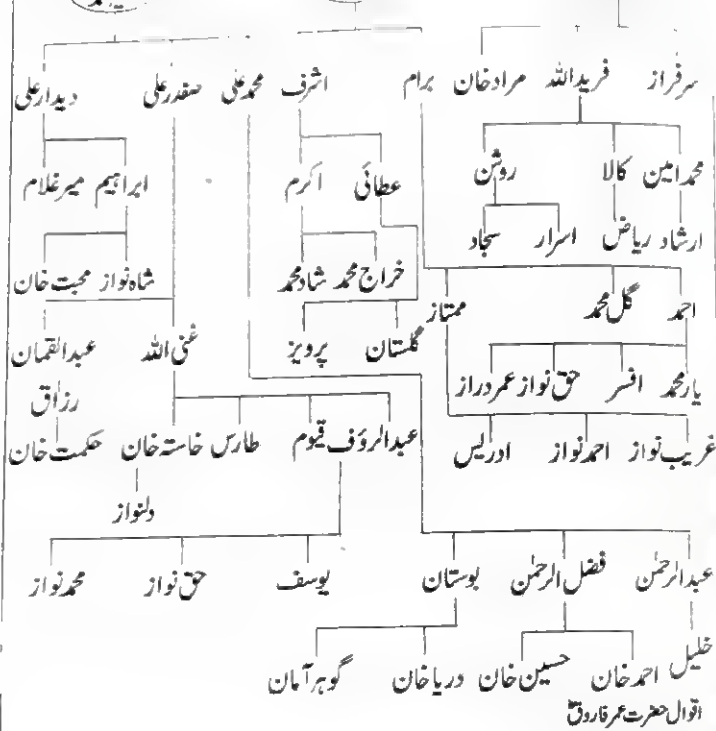 سرفراز فرید اللہ مراد خان برام اشرف محمد علی صفدر علی دیدار علی
محمد امین کالا روشن عطائی اکرم ابراہیم میر غلام
ارشاد ریاض اسرار سجاد
خراج محمد شاد محمد شاہ نواز محبت خان
احمد گل محمد ممتاز
گلستان پرویز غنی اللہ عبدالقمان
یار محمد افسر حق نواز عمر دراز رزاق
غریب نواز احمد نواز ادریس عبدالرؤف قیوم طارس خاستہ خان حکمت خان
دلنواز
عبدالرحمٰن فضل الرحمٰن بوستان یوسف حق نواز محمد نواز
خلیل احمد خان حسین خان دریا خان گوہر آمان
اقوال حضرت عمر فاروقؓ